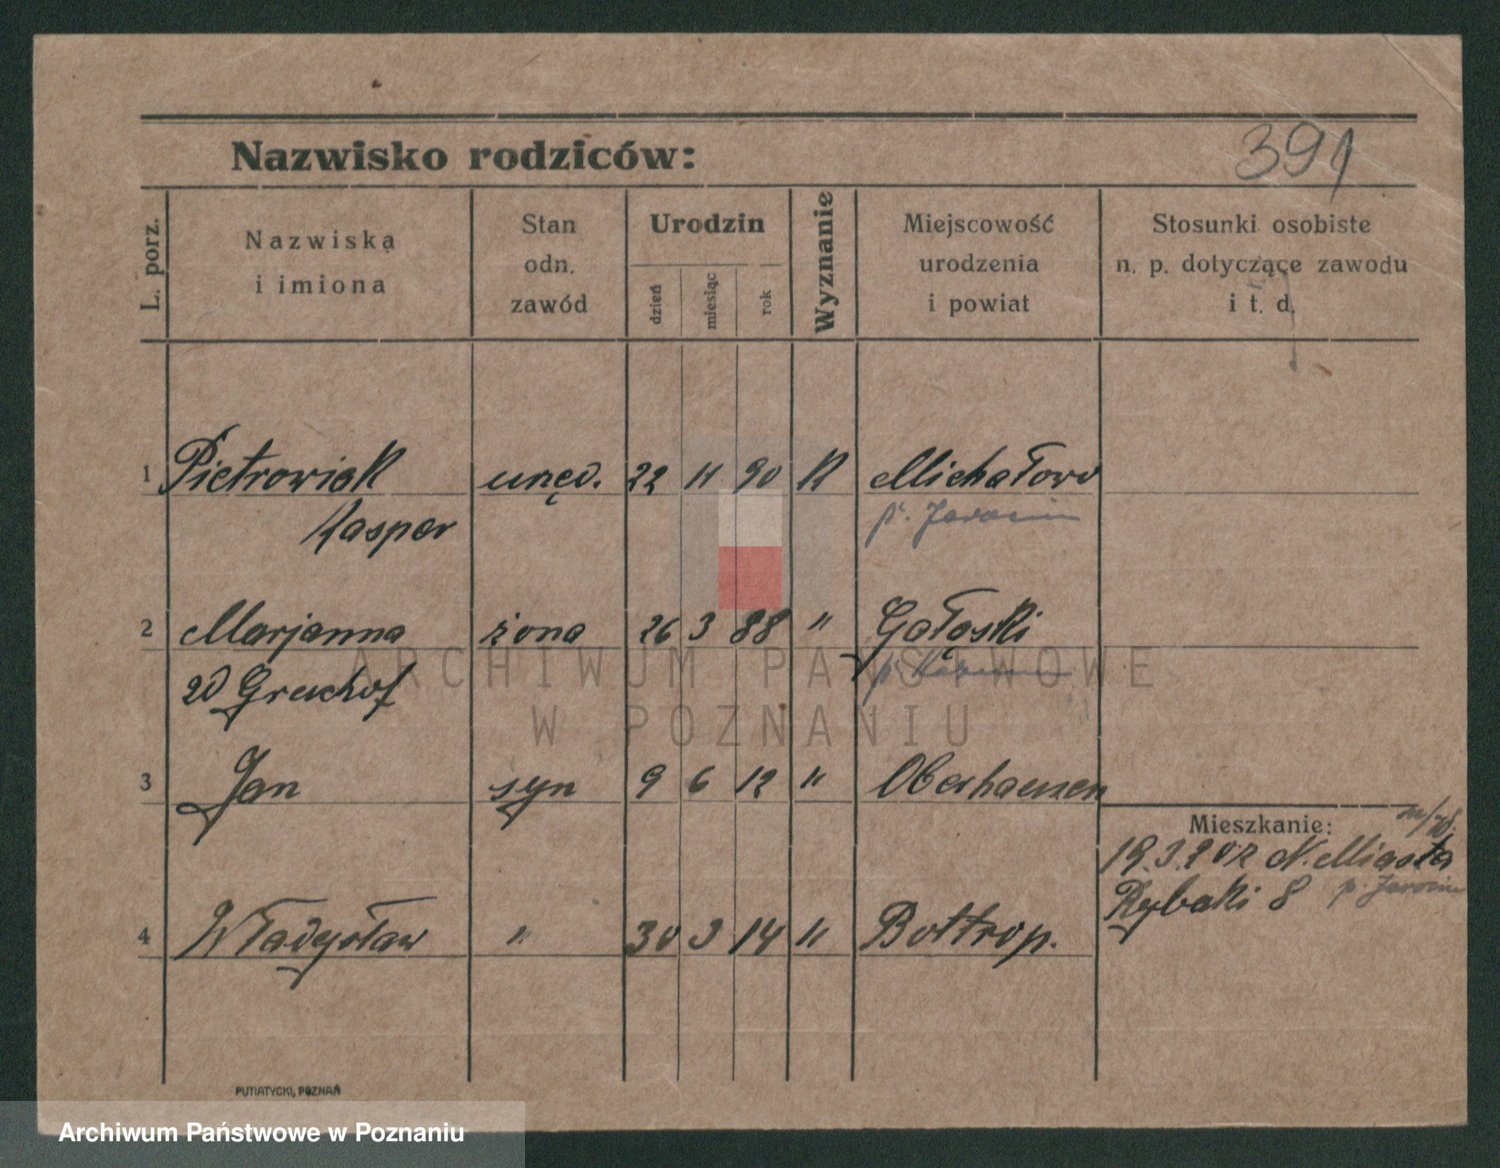 391
Nazwisko rodziców:
L. porz.
Nazwiska
i imiona
Stan
odn.
zawód
Urodzin
dzień
miesiąc
rok
Wyznanie
Miejscowość
urodzenia
i powiat
Stosunki osobiste
n. p. dotyczące zawodu
i t. d.
1 Pietrowiak urzęd. 22 11 90 K Michałowo
Kasper p. Jarocin
2 Marjanna żona 26 3 88 " Gałąski
zd Greschof p.
3 Jan syn 9 6 12 " Oberhausen
Mieszkanie:
19.3.20 z N. Miasta
Rybaki 8 p. Jarocin
4 Władysław " 30 3 14 " Bottrop.
PUTIATYCKI, POZNAŃ
ARCHIWUM PAŃSTWOWE
W POZNANIU
Archiwum Państwowe w Poznaniu